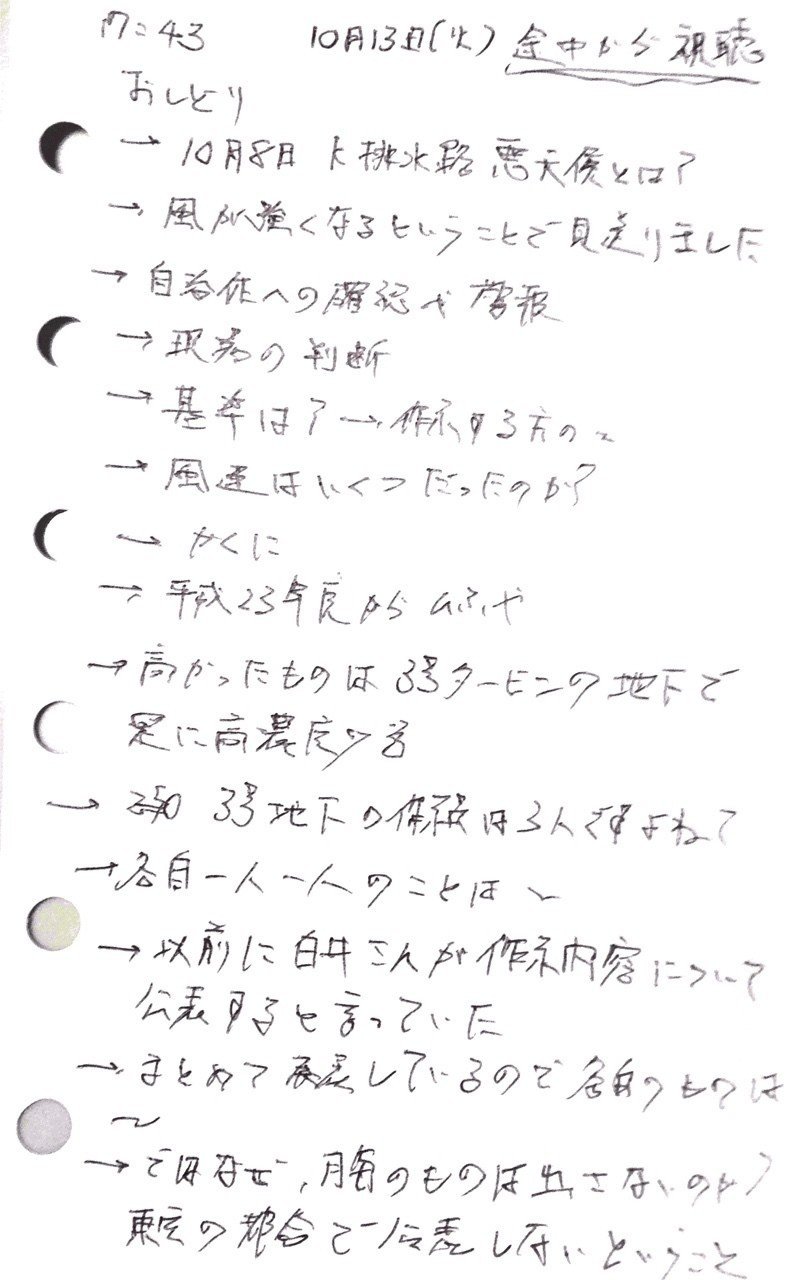 17:43 10月13日(火) 途中から視聴
おしどり
→ 10月8日 K排水路 悪天候とは?
→ 風が強くなるということで見送りました
→ 自治体への確認や警報
→ 現場の判断
→ 基準は? → 作業する方の〜
→ 風速はいくつだったのか?
→ かくに
→ 平成23年度から
→ 高かったものは3号タービンの地下で
更に高濃度の
→ 3号地下の作業は3人ですよね?
→ 各自一人一人のことは〜
→ 以前に白井さんが作業内容について
公表すると言っていた
→ まとめて発表しているので各自のものは
〜
→ ではなぜ、月毎のものは出さないのか?
東京の都合で公表しないということ